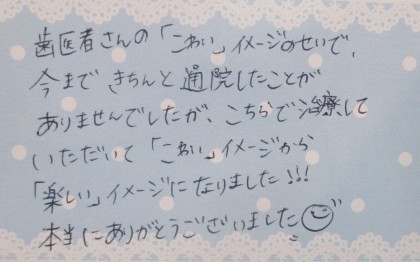 歯医者さんの「こわい」イメージのせいで、
今まできちんと通院したことが
ありませんでしたが、こちらで治療して
いただいて「こわい」イメージから
「楽しい」イメージになりました!!!
本当にありがとうございました